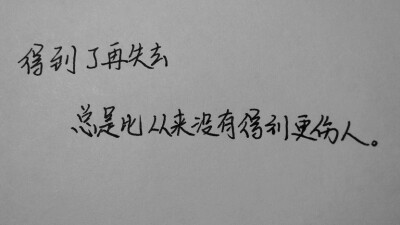 得到了再失去
总是比从来没有得到更伤人。